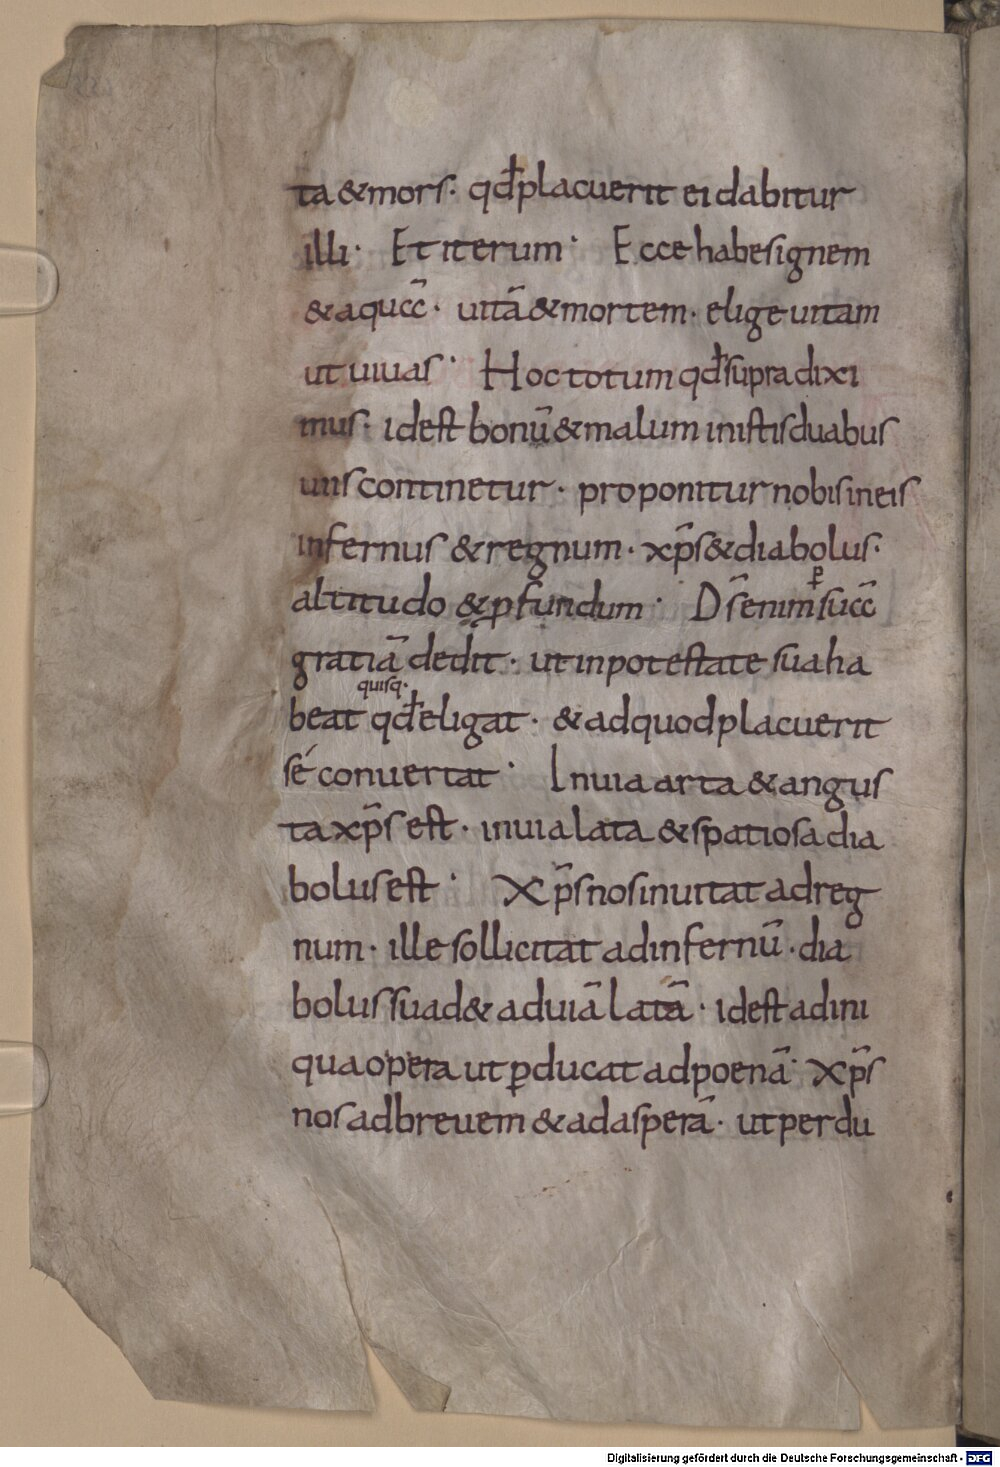 ta & mors · qđ placuerit ei dabitur
illi · Et iterum · Ecce habes ignem
& aquā · uitā & mortem · elige uitam
ut uiuas · Hoc totum qđ supra dixi
mus · id est bonū & malum in istis duabus
uiis continetur · proponitur nobis in eis
infernus & regnum · xp̄s & diabolus ·
altitudo & ꝓfundum · Ds̄ enim ꝑ suā
gratiā dedit · ut in potestate sua ha
quisq·
beat qđ eligat · & ad quod placuerit
sé conuertat · In uia arta & angus
ta xp̄s est · in uia lata & spatiosa dia
bolus est · Xp̄s nos inuitat ad reg
num · ille sollicitat ad infernū · dia
bolus suad& ad uiā latā · id est ad ini
qua opera ut ꝑducat ad poenā · Xp̄s
nos ad breuem & ad asperā · ut perdu
Digitalisierung gefördert durch die Deutsche Forschungsgemeinschaft - DFG